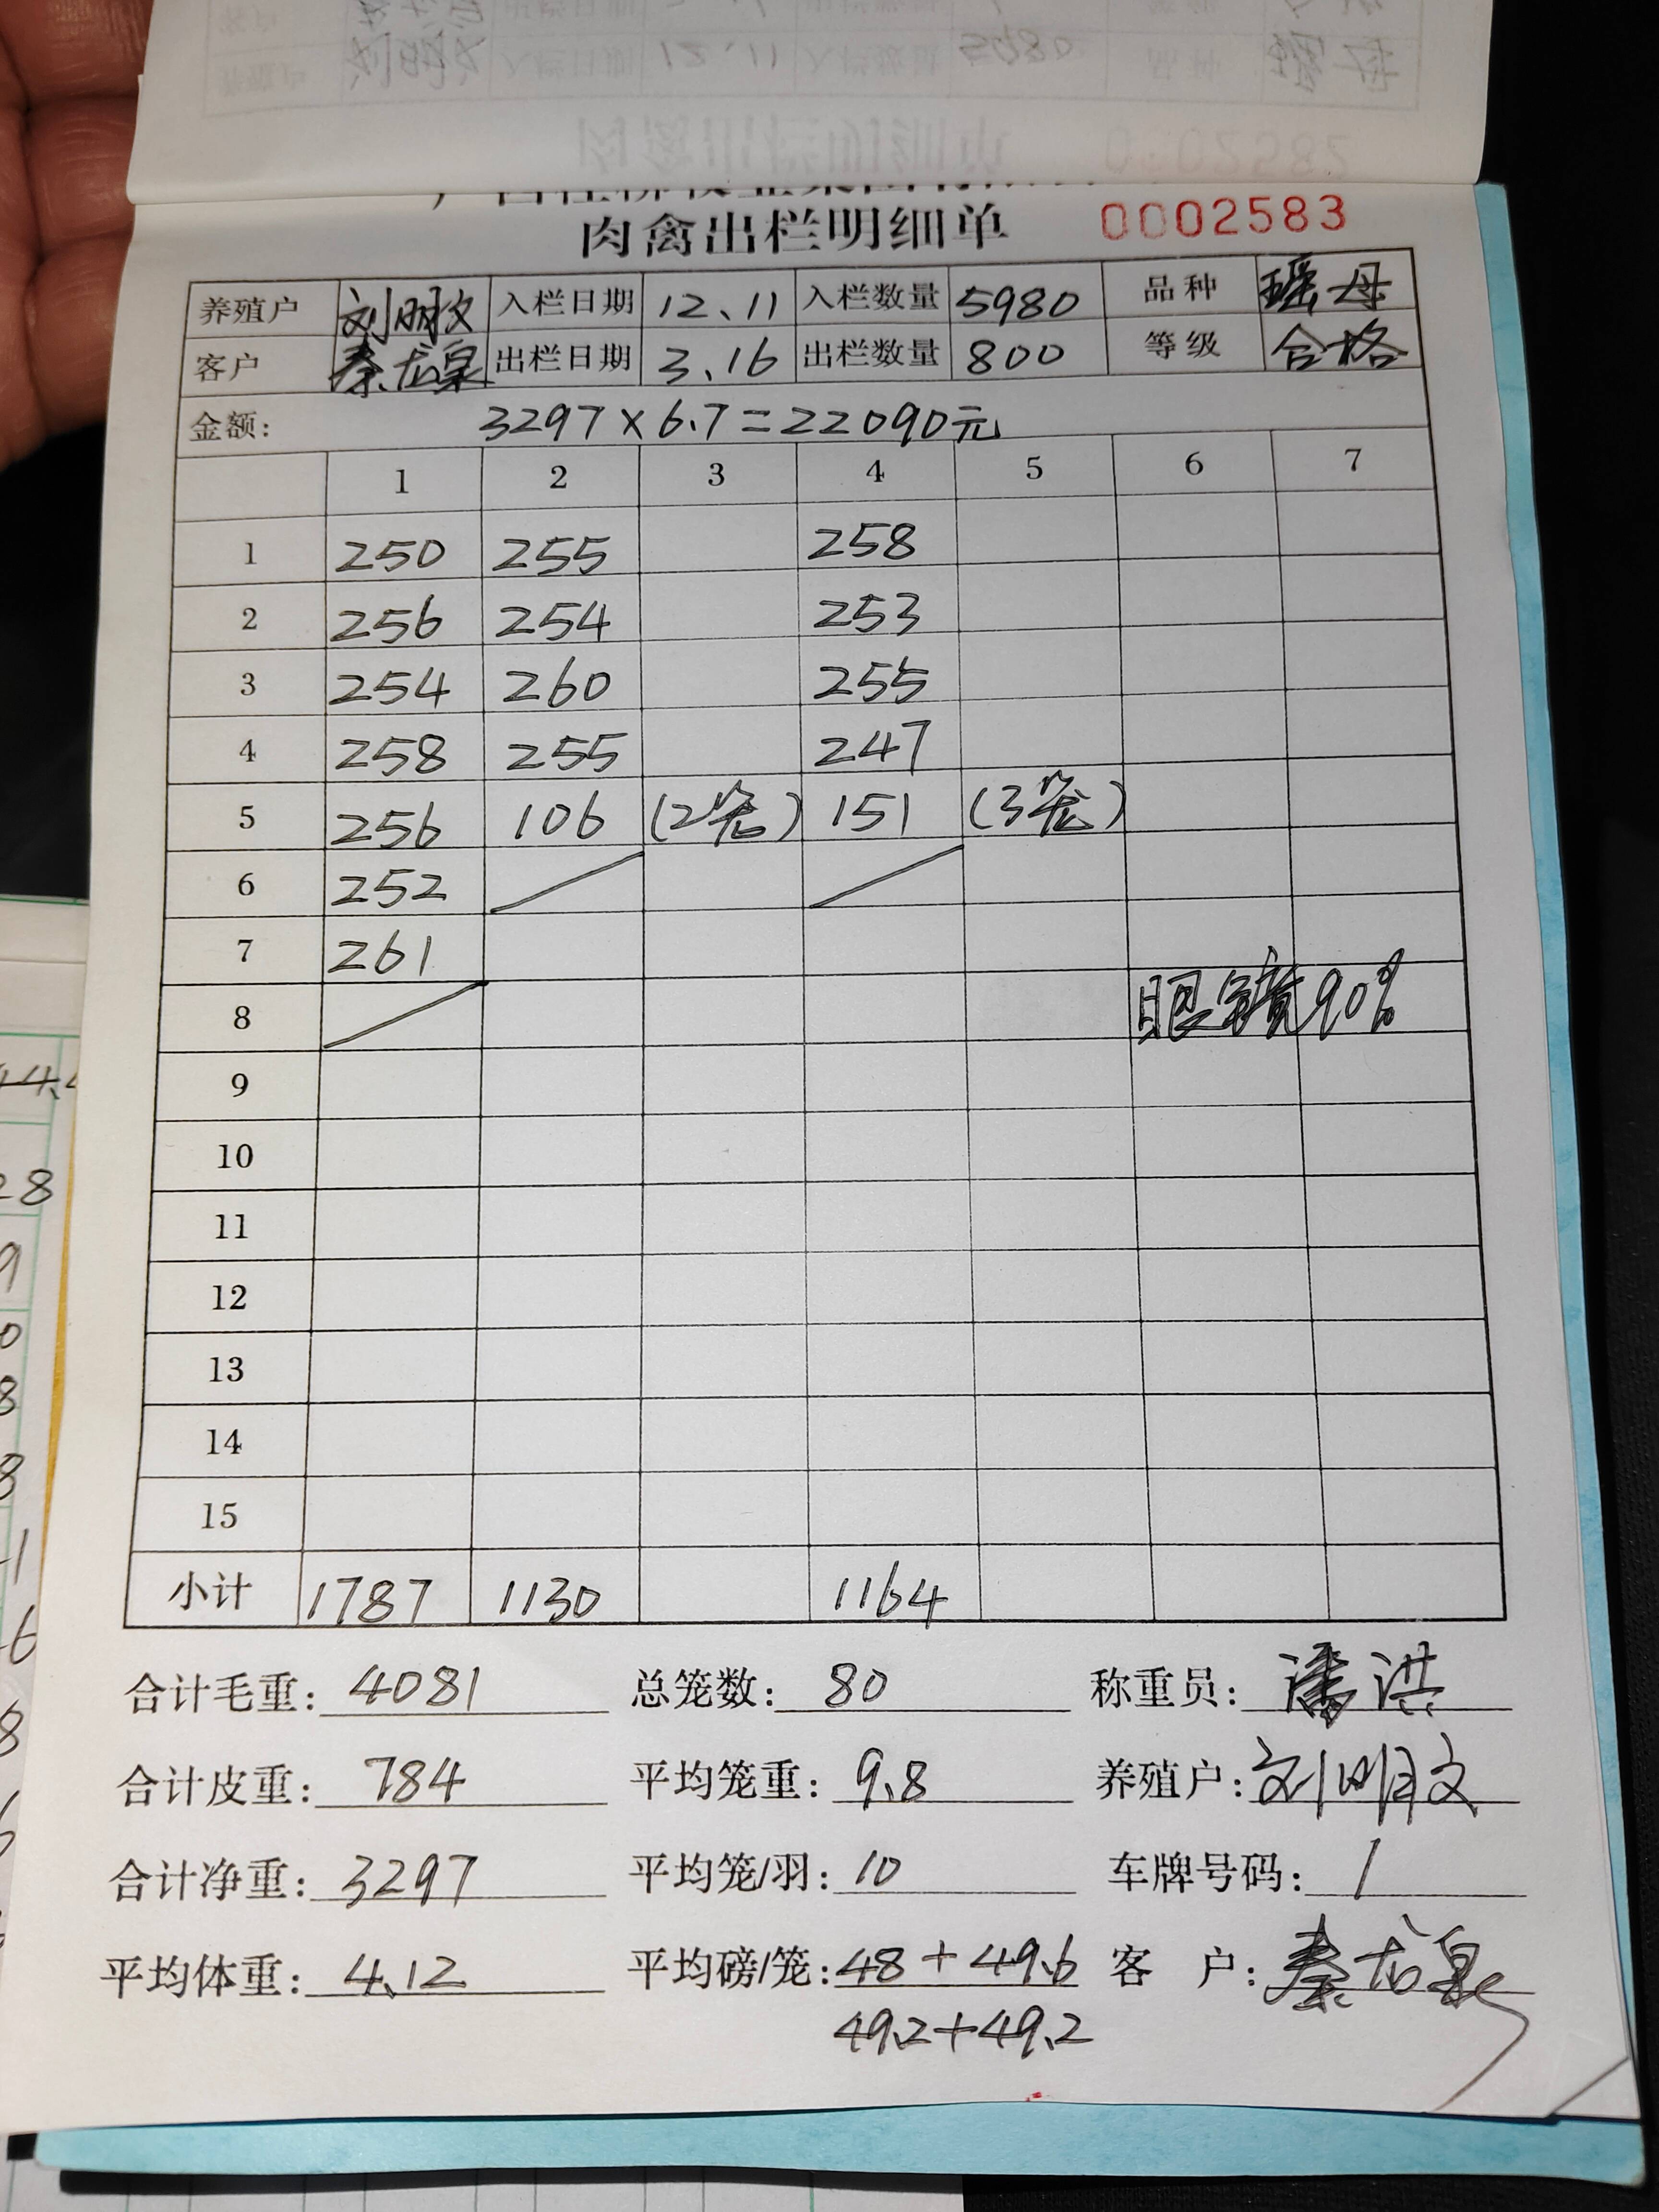 肉禽出栏明细单 0002583
养殖户 刘明文 入栏日期 12.11 入栏数量 5980 品种 瑶母
客户 秦龙泉 出栏日期 3.16 出栏数量 800 等级 合格
金额: 3297×6.7=22090元
1 2 3 4 5 6 7
1 250 255 258
2 256 254 253
3 254 260 255
4 258 255 247
5 256 106 (2笼) 151 (3笼)
6 252
7 261
8 眼镜90%
9
10
11
12
13
14
15
小计 1787 1130 1164
合计毛重: 4081 总笼数: 80 称重员: 潘洪
合计皮重: 784 平均笼重: 9.8 养殖户: 刘明文
合计净重: 3297 平均笼/羽: 10 车牌号码: /
平均体重: 4.12 平均磅/笼: 48+49.6 客 户: 秦龙泉
49.2+49.2